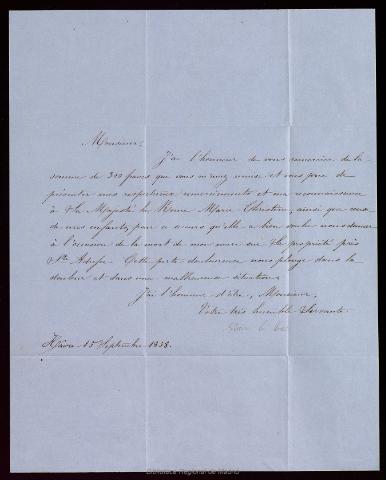 Monsieur,
J'ai l'honneur de vous remercier de la
somme de 300 francs que vous m'avez remise et vous prie de
présenter mes respectueux remerciments et ma reconnaissance
à Sa Majesté la Reine Marie Christine, ainsi que ceux
de mes enfants, pour le secours qu'elle a bien voulu nous donner
à l'occasion de la mort de mon mari sur Sa propriété près
Ste Adresse. Cette perte douloureuse nous plonge dans la
douleur et dans une malheureuse situation.
J'ai l'honneur d'être, Monsieur,
Votre très humble Servante.
Hâvre 15 Septembre 1858.
Biblioteca Regional de Madrid